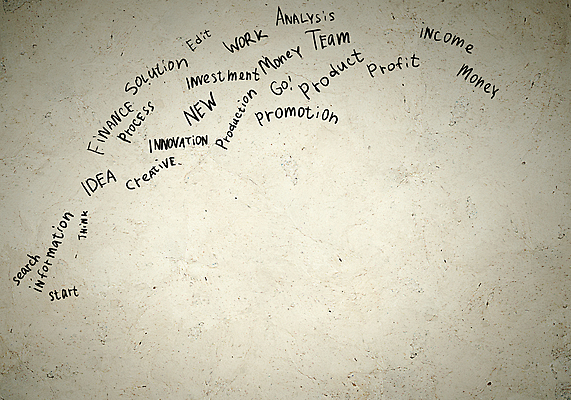 ANALYSIS
Edit
WORK
TEAM
INCOME
Money
SOLUTION
INVestmeNT
Product
Profit
Money
Go!
FINANCE
PROCESS
NEW
Production
PROMOTION
INNOVATION
IDEA
CREATIVE.
THINK
search
information
start